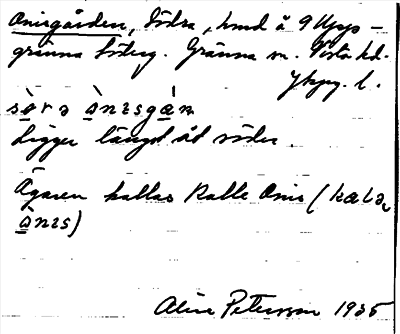 Onisgården, Södra, hmd å 9 Upp-
gränna Söterg. Gränna sn. Vista hd.
Jkpg. l.
sø̀rə ànɪsgàn
Ligger längst åt söder.
Ägaren kallas Kalle Onis (kalə
ànɪs)
Aline Petersson 1935